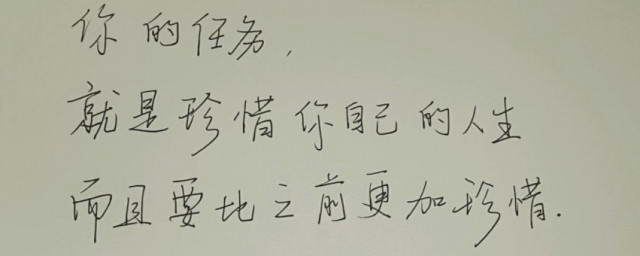 你的任务,
就是珍惜你自己的人生
而且要比之前更加珍惜.